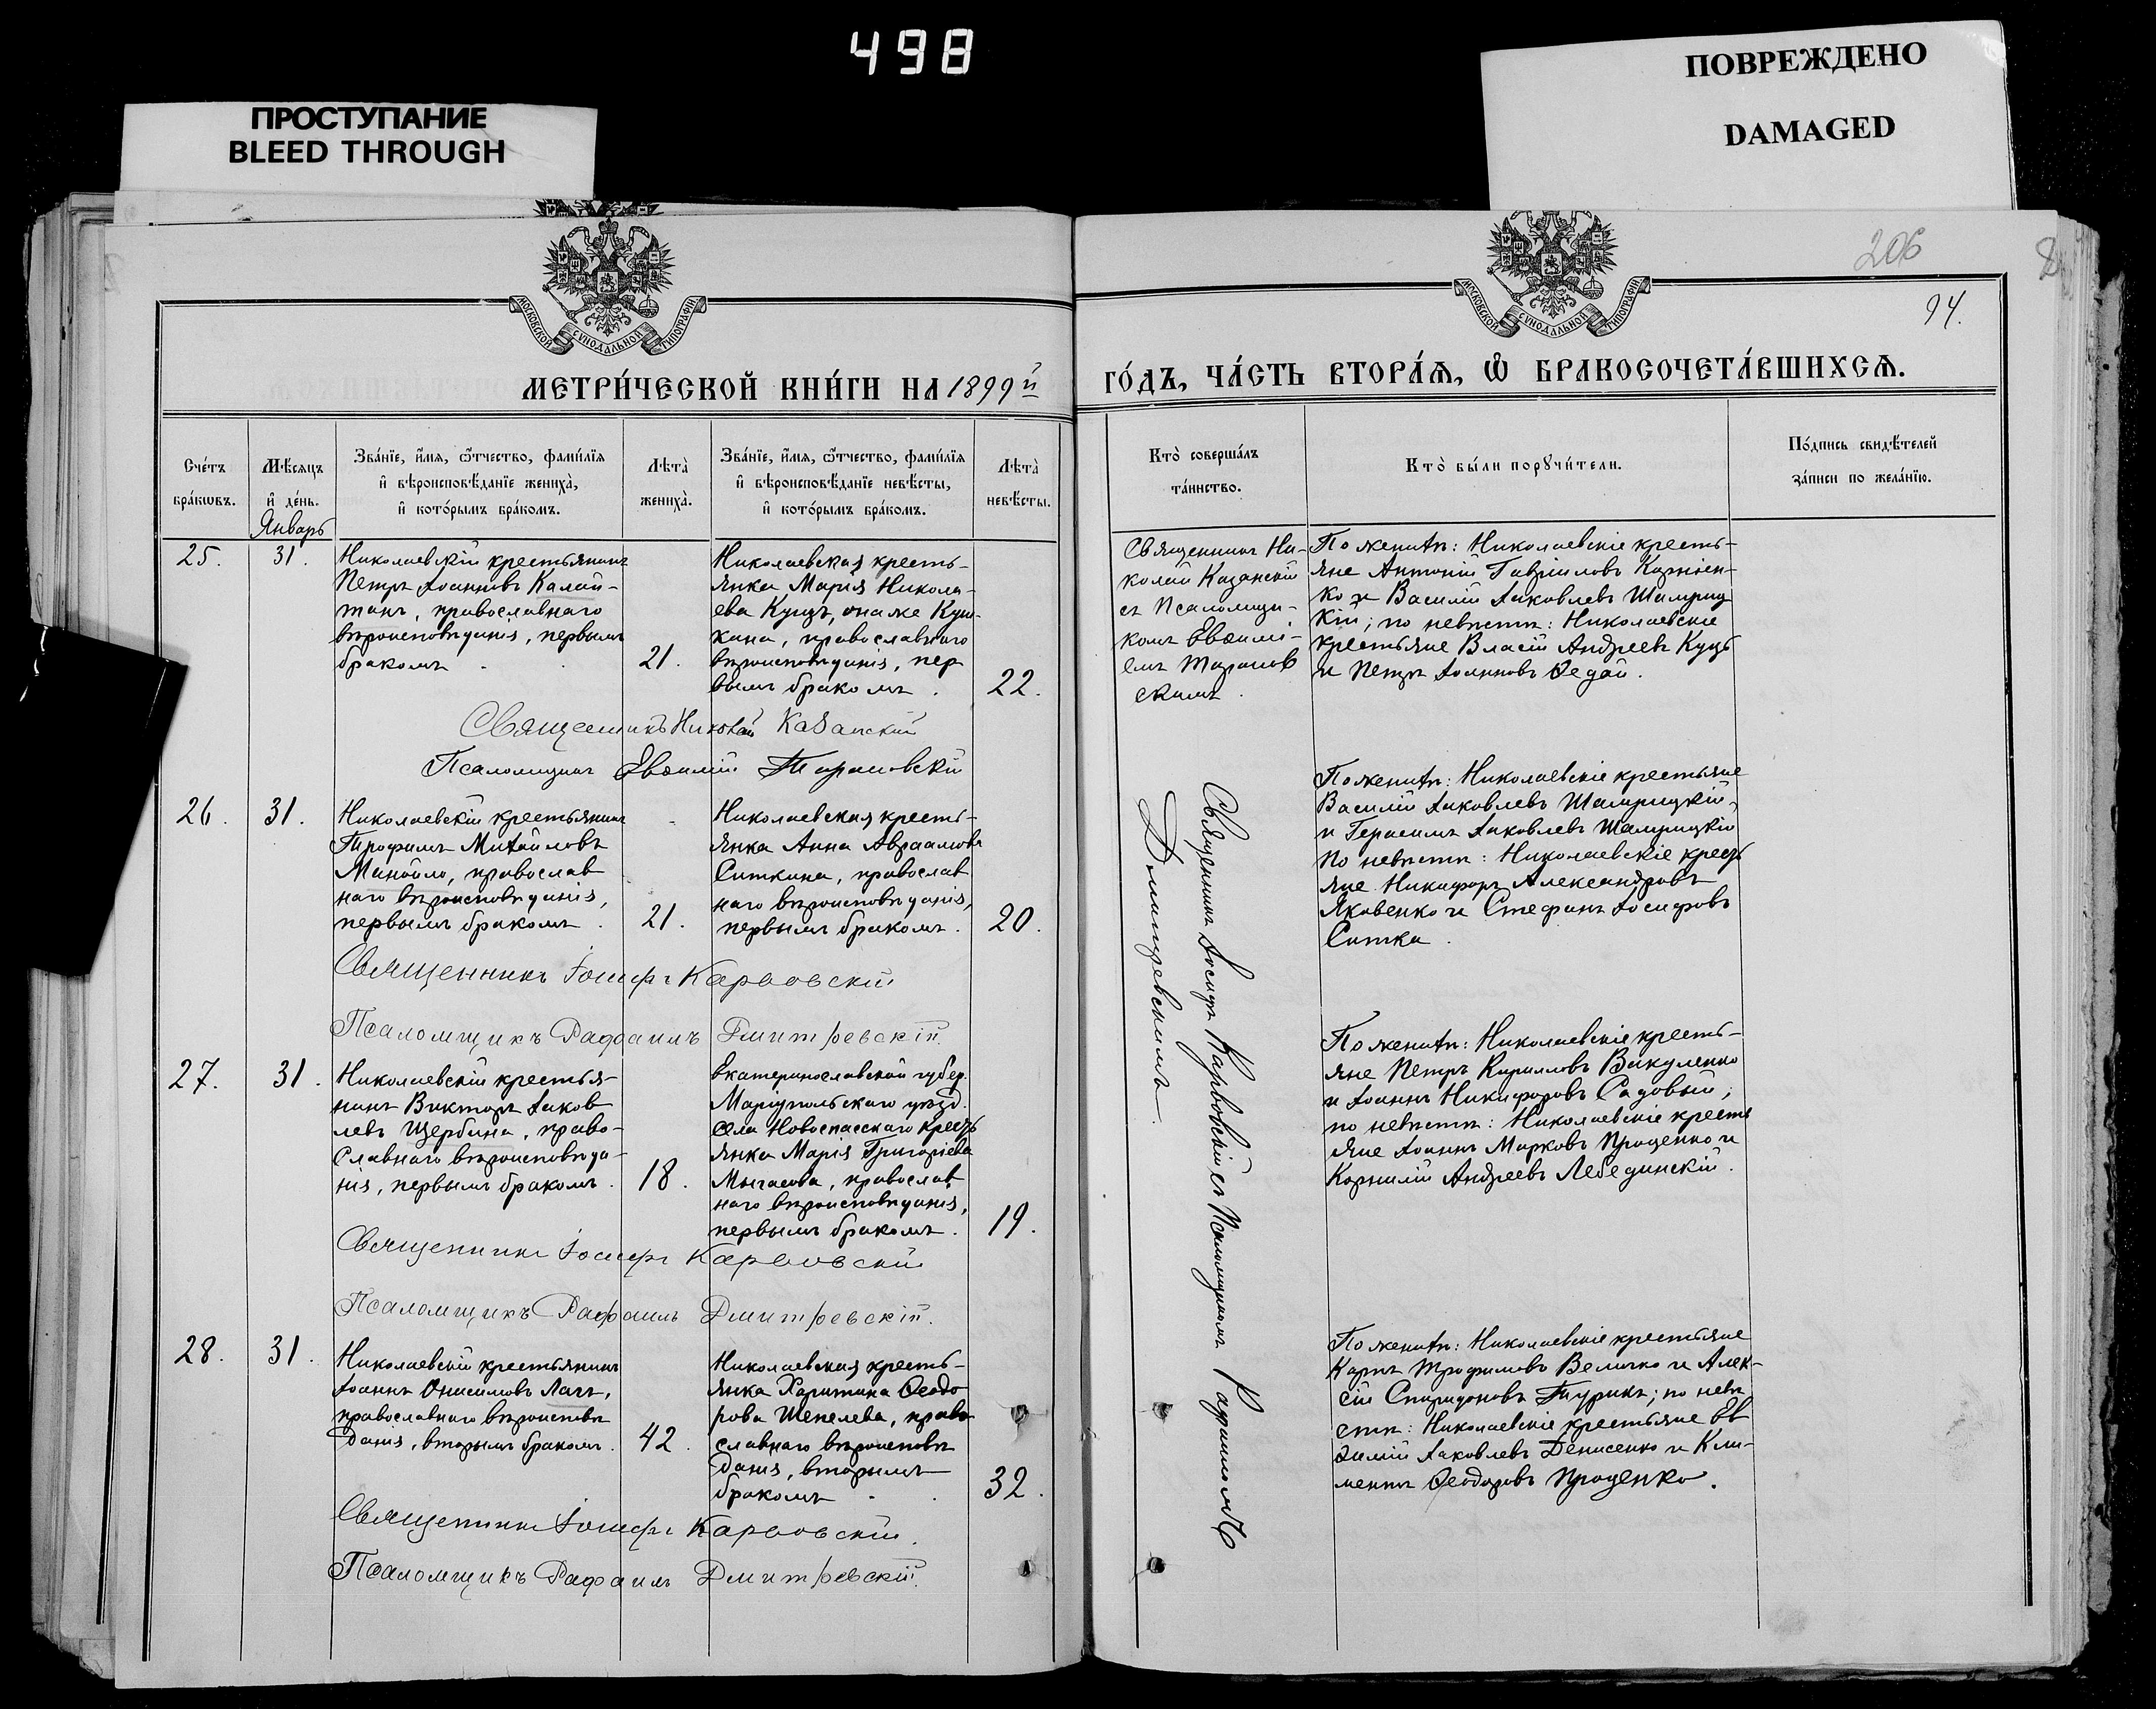 498
ПРОСТУПАНИЕ
BLEED THROUGH
ПОВРЕЖДЕНО
DAMAGED
206
94.
МОСКОВСКОЙ СѴНОДАЛЬНОЙ ТИПОГРАФІИ
МОСКОВСКОЙ СѴНОДАЛЬНОЙ ТИПОГРАФІИ
МЕТРИ́ЧЕСКОЙ КНИ́ГИ НА 1899й
ГО́ДЪ, ЧА́СТЬ ВТОРА́Ѧ, Ѡ҆ БРАКОСОЧЕТА́ВШИХСѦ.
Сче́тъ
бра́кѡвъ.
Мѣ́сяцъ
и҆ де́нь.
Январь
Зва́нїе, и҆́мя, ѻ҆́тчество, фами́лїя
и҆ вѣроисповѣ́данїе жениха̀,
и҆ кото́рымъ бра́комъ.
Лѣта̀
жениха̀.
Зва́нїе, и҆́мя, ѻ҆́тчество, фами́лїя
и҆ вѣроисповѣ́данїе невѣ́сты,
и҆ кото́рымъ бра́комъ.
Лѣта̀
невѣ́сты.
Кто̀ соверша́лъ
та́инство.
Кто̀ бы́ли порꙋчи́тели.
По́дпись свидѣ́телей
за́писи по жела́нїю.
25.
31.
Николаевскій крестьянинъ
Петръ Іоанновъ Калай-
танъ, православнаго
вѣроисповѣданія, первымъ
бракомъ
21.
Николаевская кресть-
янка Марія Никола-
ева Куцъ, она же Куц-
кина, православнаго
вѣроисповѣданія, пер
вымъ бракомъ.
22.
Священникъ Ни-
колай Казанскій
съ Псаломщи-
комъ Евѳимі-
емъ Таранов
скимъ.
По женихѣ: Николаевскіе кресть-
яне Антоній Гавріиловъ Корніен-
ко и Василій Іаковлевъ Шамриц
кій; по невѣстѣ: Николаевскіе
крестьяне Власій Андреевъ Куцъ
и Петръ Іоанновъ Седай.
Священникъ Николай Казанскій
Псаломщикъ Евѳимій Тарановскій
26.
31.
Николаевскій крестьянинъ
Трофимъ Михайловъ
Манойло, православ
наго вѣроисповѣданія,
первымъ бракомъ.
21.
Николаевская кресть-
янка Анна Авраамова
Ситкина, православ
наго вѣроисповѣданія,
первымъ бракомъ.
20.
Священникъ Іосифъ Карповскій съ Псаломщикомъ Рафаиломъ
Дмитревскимъ.
По женихѣ: Николаевскіе крестьяне
Василій Іаковлевъ Шамрицкій,
и Герасимъ Іаковлевъ Шамрицкій
По невѣстѣ: Николаевскіе кресть
яне Никифоръ Александровъ
Яковенко и Стефанъ Іосифовъ
Ситка.
Священникъ Іосифъ Карповскій
Псаломщикъ Рафаилъ Дмитревскій.
27.
31.
Николаевскій крестья-
нинъ Викторъ Іаков
левъ Щербина, право-
славнаго вѣроисповѣда-
нія, первымъ бракомъ.
18.
Екатеринославской губер.
Маріупольскаго уѣзд.
села Новоспасскаго кресть
янка Марія Григоріева
православ
наго вѣроисповѣданія,
первымъ бракомъ.
19.
По женихѣ: Николаевскіе кресть-
яне Петръ Кирилловъ Викуленко
и Іоаннъ Никифоровъ Садовый;
по невѣстѣ: Николаевскіе кресть
яне Іоаннъ Марковъ Проценко и
Корнилій Андреевъ Лебединскій.
Священникъ Іосифъ Карповскій
Псаломщикъ Рафаилъ Дмитревскій.
28.
31.
Николаевскій крестьянинъ
Іоаннъ Онисимовъ Лагъ,
православнаго вѣроисповѣ
данія, вторымъ бракомъ.
42.
Николаевская кресть-
янка Харитина Ѳеодо
рова Шепелева, право
славнаго вѣроисповѣ
данія, вторымъ
бракомъ.
32.
По женихѣ: Николаевскіе крестьяне
Карпъ Трофимовъ Величко и Алек-
сій Спиридоновъ Турикъ; по невѣ
стѣ: Николаевскіе крестьяне Ев
ѳимій Іаковлевъ Денисенко и Кли-
ментъ Ѳеодоровъ Проценко.
Священникъ Іосифъ Карповскій.
Псаломщикъ Рафаилъ Дмитревскій.